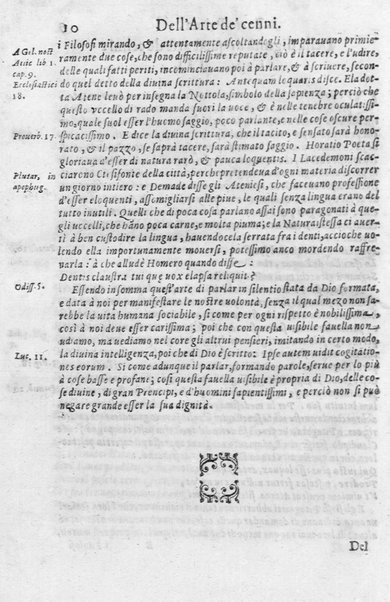 10 Dell'Arte de' cenni.
A Gel. noct.
Attic lib 1.
cap. 9.
Ecclesiastici
18.
i Filosofi mirando, & attentamente ascoltandogli, imparauano primie-
ramente due cose, che sono difficilissime reputate, ciò è il tacere, e l'udire,
delle quali fatti periti, incominciauano poi à parlare, & à scriuere, secon-
do quel detto della diuina scrittura: Antequam loquaris disce. E la dot-
ta Atene leuò per insegna la Nottola, simbolo della sapienza; perciò che
questo vccello di rado manda fuori la uoce, & è nelle tenebre oculatissi-
mo, quale suol esser l'huomo saggio, poco parlante, e nelle cose oscure per-
Prouerb. 17.
spicacissimo. E dice la diuina scrittura, che il tacito, e sensato sarà hono-
rato, & il pazzo, se saprà tacere, sarà stimato saggio. Horatio Poeta si
gloriaua d'esser di natura rarò, & pauca loquentis. I Lacedemoni scac-
Plutar, in
apophtug.
ciarono Ctisifonte della città, perche pretendeua d'ogni materia discorrer
un giorno intiero: e Demade disse gli Ateniesi, che faceuano professione
d'esser eloquenti, assimigliarsi alle piue, le quali senza lingua erano del
tutto inutili. Quelli che di poca cosa parlano assai sono paragonati à que-
gli uccelli, che hāno poca carne, e molta piuma; e la Natura istessa ci auer-
tì à ben custodire la lingua, hauendocela serrata fra i denti, accioche uo-
lendo ella importunamente mouersi, potessimo anco mordendo raffre-
narla: à che alludè Homero quando disse.
Dentis claustra tui quę vox elapsa reliquit?
Odiss. 5.
Essendo in somma quest'arte di parlar in silentio stata da Dio formata,
e data à noi per manifestare le nostre uolontà, senza il qual mezo non sa-
rebbe la uita humana sociabile, si come per ogni rispetto è nobilissima,
così à noi deue esser carissima; poi che con questa uisibile fauella non
udiamo, ma uediamo nel core gli altrui pensieri, imitando in certo modo,
Luc. 11.
la diuina intelligenza, poi che di Dio è scritto: Ipse autem uidit cogitatio-
nes eorum. Si come adunque il parlar, formando parole, serue per lo più
à cose basse e profane; così questa fauella uisibile è propria di Dio, delle co-
se diuine, di gran Prencipi, e d'huomini sapientissimi, e perciò non si può
negare grande esser la sua dignità.
Del